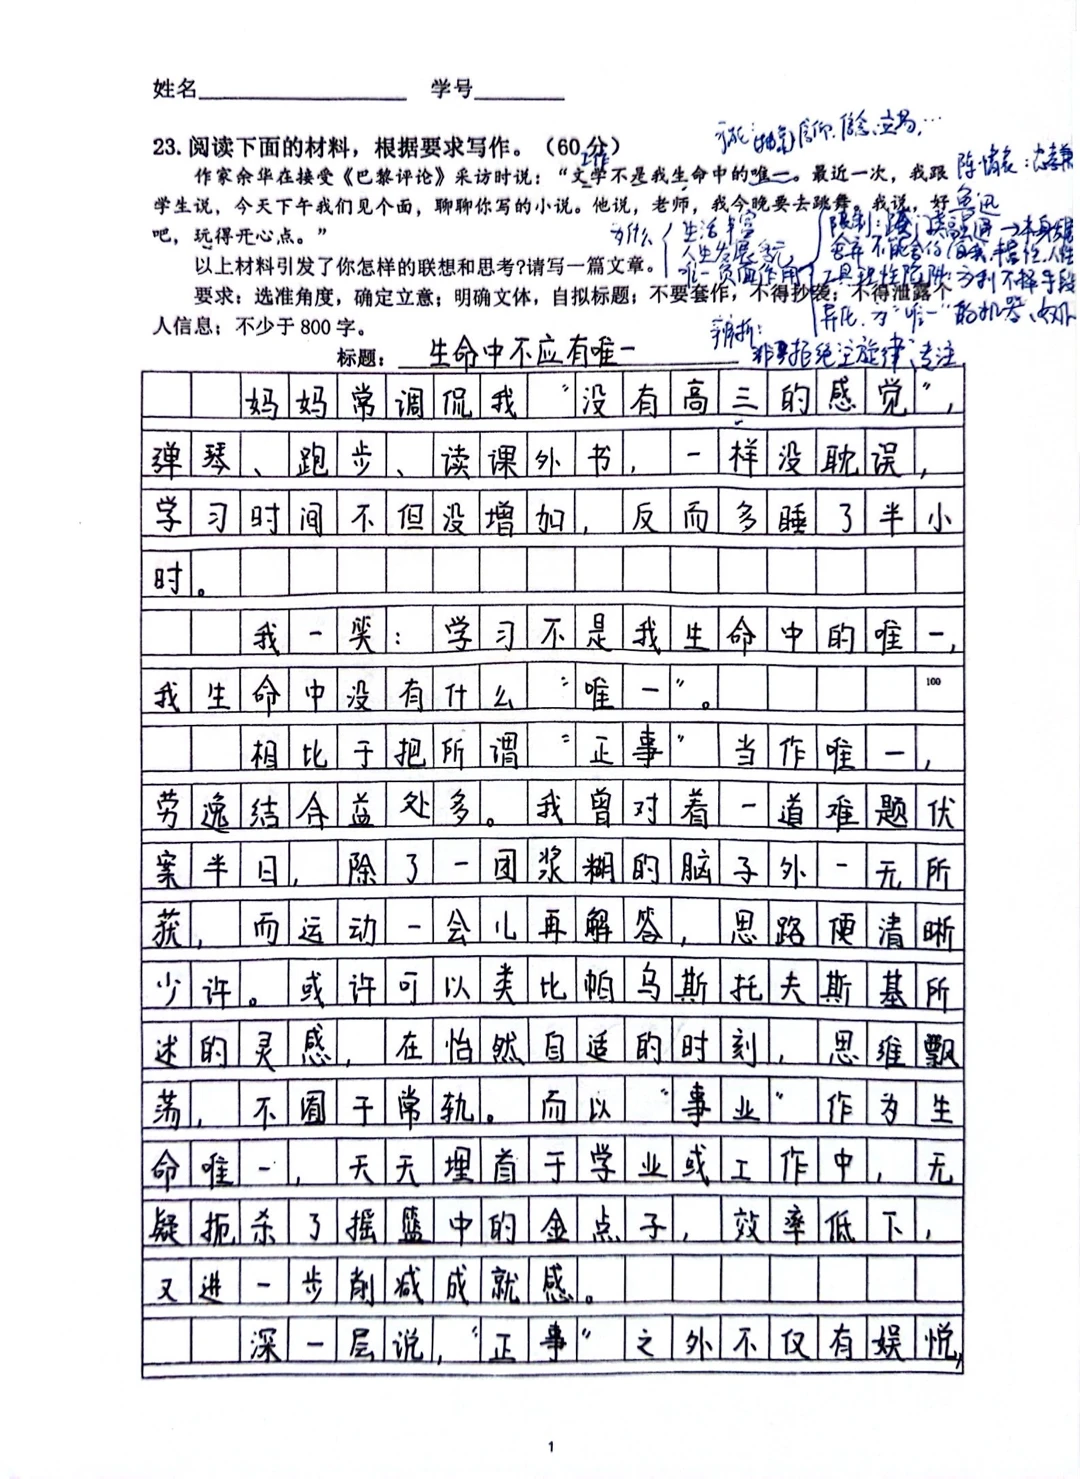 姓名 学号
23. 阅读下面的材料，根据要求写作。（60分）
工作
作家余华在接受《巴黎评论》采访时说：“文学不是我生命中的唯一。最近一次，我跟
学生说，今天下午我们见个面，聊聊你写的小说。他说，老师，我今晚要去跳舞。我说，好
吧，玩得开心点。”
以上材料引发了你怎样的联想和思考?请写一篇文章。
要求：选准角度，确定立意；明确文体，自拟标题；不要套作，不得抄袭；不得泄露个
人信息；不少于800字。
信仰、信念、立场，…
鲁迅
为什么
生活丰富
人生发展多元
唯一负面作用
工具理性陷阱
异化，为“唯一”的机器、奴仆
辨析：
非要拒绝主旋律、专注
标题： 生命中不应有唯一
妈妈常调侃我“没有高三的感觉”，
弹琴、跑步、读课外书，一样没耽误，
学习时间不但没增加，反而多睡了半小
时。
我一笑：学习不是我生命中的唯一，
我生命中没有什么“唯一”。
100
相比于把所谓“正事”当作唯一，
劳逸结合益处多。我曾对着一道难题伏
案半日，除了一团浆糊的脑子外一无所
获，而运动一会儿再解答，思路便清晰
少许。或许可以类比帕乌斯托夫斯基所
述的灵感，在怡然自适的时刻，思维飘
荡，不囿于常轨。而以“事业”作为生
命唯一，天天埋首于学业或工作中，无
疑扼杀了摇篮中的金点子，效率低下，
又进一步削减成就感。
深一层说，“正事”之外不仅有娱悦，
1